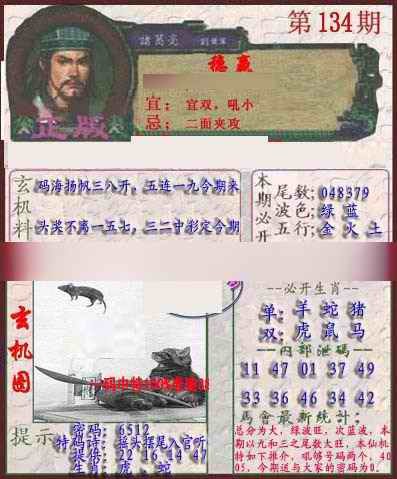 第134期
諸葛亮
稳赢
宜；宜双，吼小
正版
忌；二面夹攻
玄机料
码海扬帆三八开，五连一九合期来
头奖不离一五七，三二寸彩定合期
本期必开
尾数;048379
波色;绿 蓝
五行;金 火 土
--必开生肖--
单:羊 蛇 猪
双:虎 鼠 马
--内部泄码--
11 47 01 37 49
33 36 46 34 42
馬會最新統計:
总分为大，绿波旺，次蓝波，本
期以九和三之尾数大旺，本仙机
特如下推介，吼够号码两个，4
05，今期送与大家的密码为0.
玄机图
提示
密码: 6512
特码诗: 摇头摆尾入官听
提供: 22 16 14 47
生肖: 虎、蛇